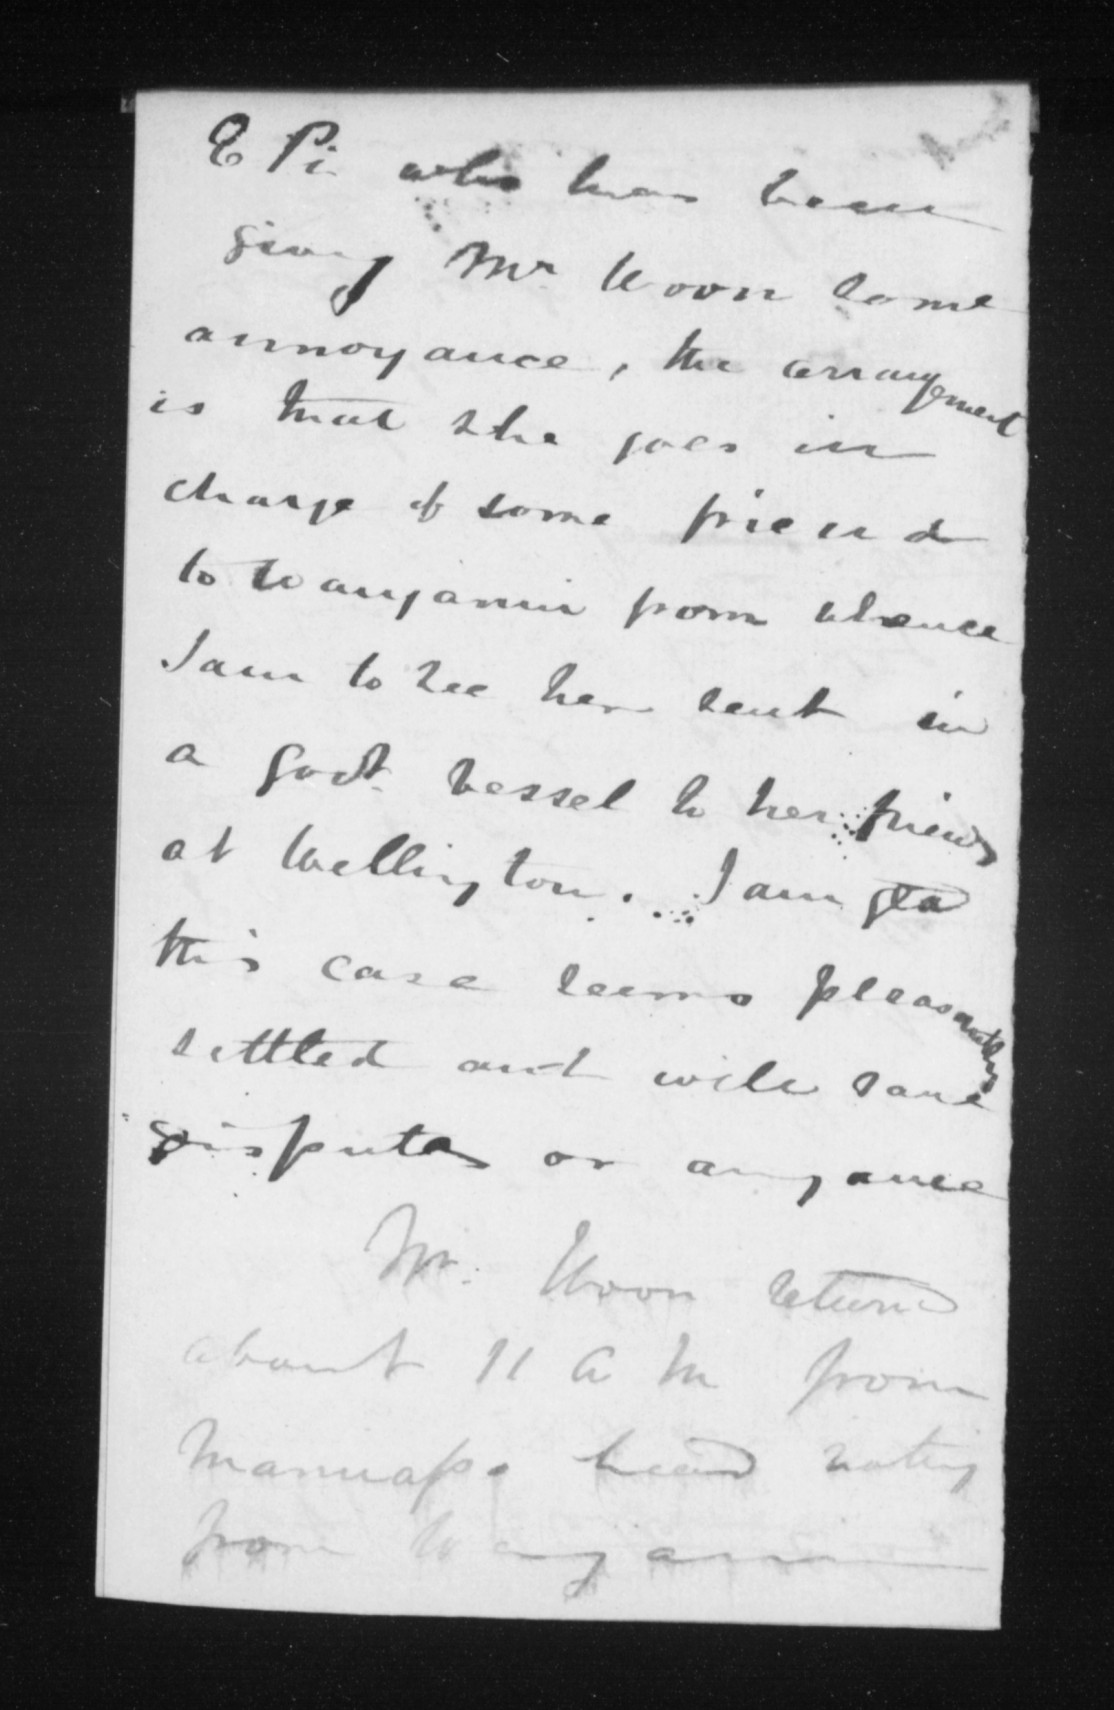 E Pi who has been
giving Mr Woon some
annoyance, the arrangement
is that she goes in
charge of some friend
to Wanganui from whence
I am to see her sent in
a Govt. vessel to her friends
at Wellington. I am glad
this case seems pleasantly
settled and will save
disputes or anyance
Mr. Woon returned
about 11 A M from
heard nothing
from Wanganui